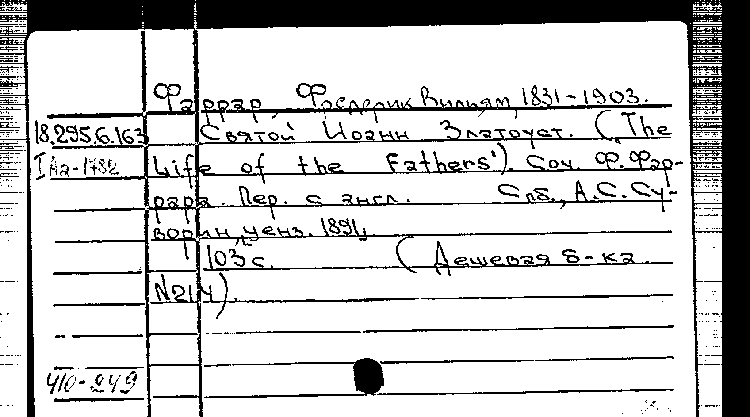 Фаррар, Фредерик Вильям, 1831-1903.
18.295.6.163 Святой Иоанн Златоуст. (The
I Аа-1782 Life of the Fathers'). Соч. Ф. Фар-
рара. Пер. с англ. Спб., А.С. Су-
ворин, ценз. 1891,
103 с. (Дешевая б-ка.
N214).
410-249